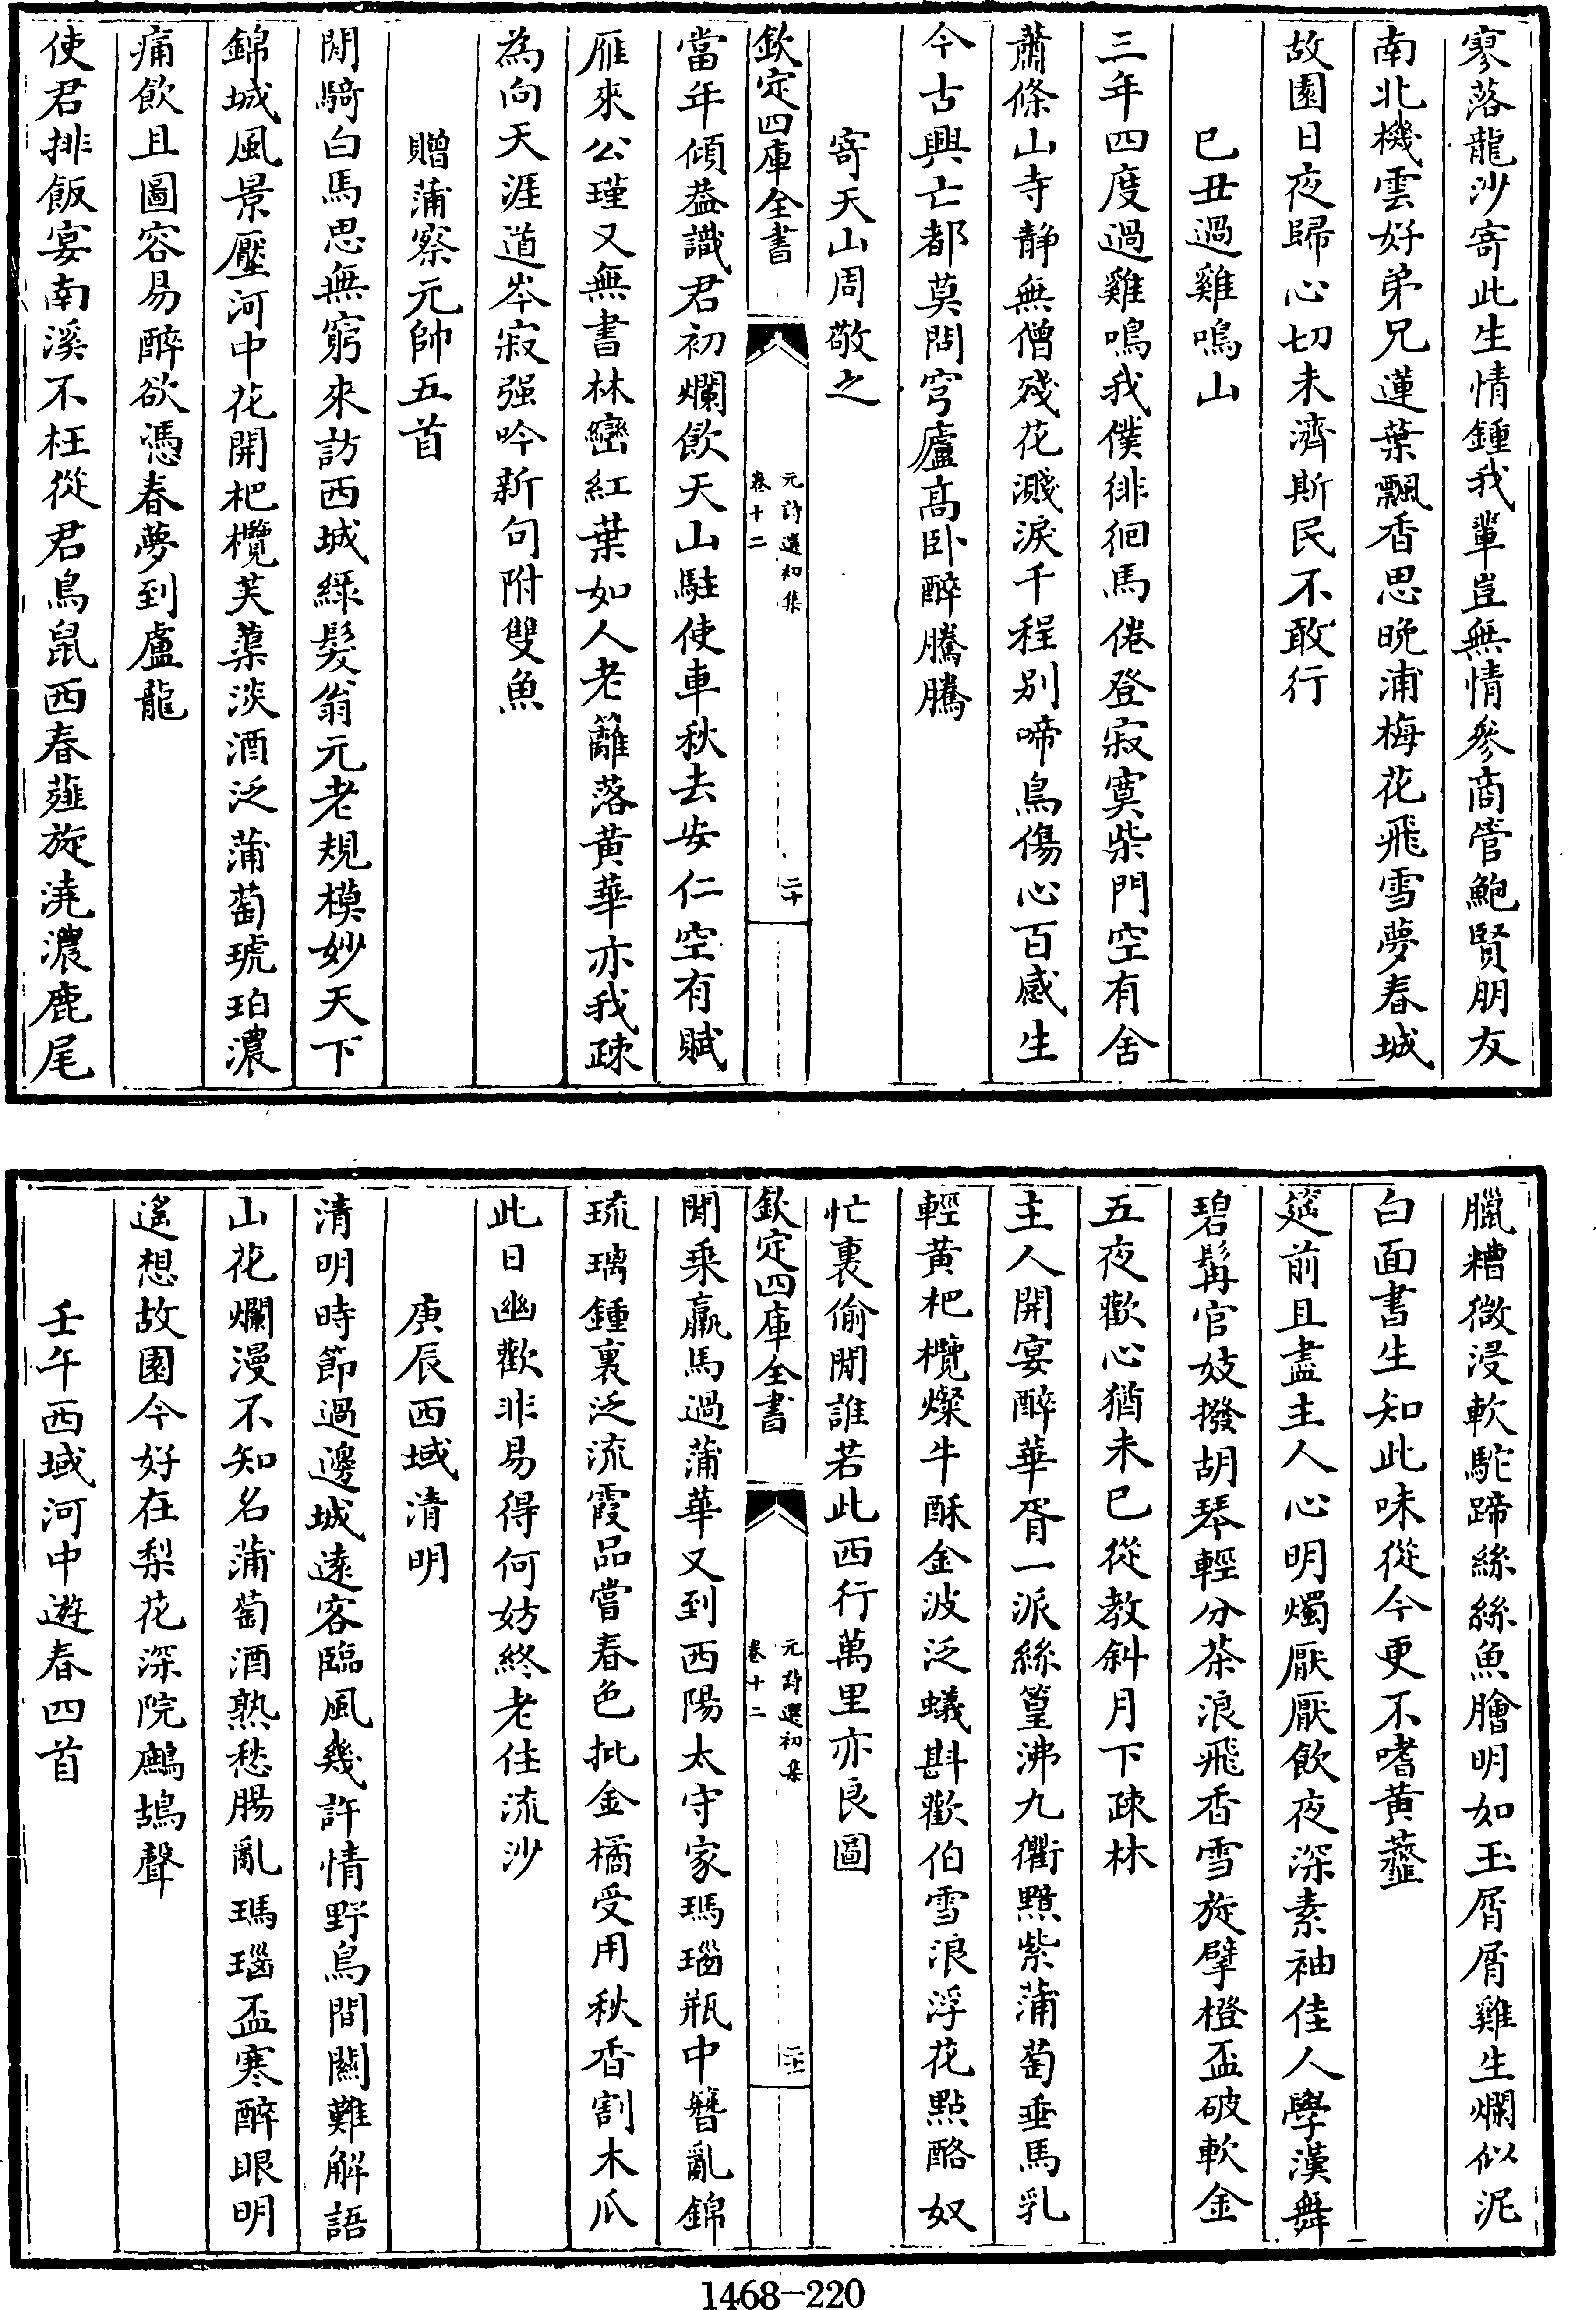 寥落龍沙寄此生情鍾我輩豈無情參商管鮑賢朋友
南北機雲好弟兄蓮葉飄香思晚浦梅花飛雪夢春城
故園日夜歸心切未濟斯民不敢行
已丑過雞鳴山
三年四度過雞鳴我僕徘徊馬倦登寂寞柴門空有舍
蕭條山寺静無僧殘花濺淚千程别啼鳥傷心百感生
今古興亡都莫問穹廬髙卧醉騰騰
寄天山周敬之
欽定四庫全書
元詩選初集
卷十二
二十
當年傾葢識君初爛飲天山駐使車秋去安仁空有賦
雁來公瑾又無書林巒紅葉如人老籬落黄華亦我疎
為向天涯道岑寂强吟新句附雙魚
贈蒲察元帥五首
閒騎白馬思無窮來訪西城緑髮翁元老規模妙天下
錦城風景壓河中花開杷欖芙蕖淡酒泛蒲萄琥珀濃
痛飲且圖容易醉欲憑春夢到盧龍
使君排飯宴南溪不枉從君鳥鼠西春薤旋澆濃鹿尾
臘糟微浸軟駝蹄絲絲魚膾明如玉屑屑雞生爛似泥
白面書生知此味從今更不嗜黄虀
筵前且盡主人心明燭厭厭飲夜深素袖佳人學漢舞
碧髯官妓撥胡琴輕分茶浪飛香雪旋擘橙盃破軟金
五夜歡心猶未已從教斜月下疎林
主人開宴醉華胥一派絲篁沸九衢黰紫蒲萄垂馬乳
輕黄杷欖燦牛酥金波泛蟻斟歡伯雪浪浮花點酪奴
忙裏偷閒誰若此西行萬里亦良圖
欽定四庫全書
元詩選初集
卷十二
二十一
閒乘羸馬過蒲華又到西陽太守家瑪瑙瓶中簪亂錦
琉璃鍾裏泛流霞品嘗春色批金橘受用秋香割木瓜
此日幽歡非易得何妨終老住流沙
庚辰西域清明
清明時節過邊城逺客臨風幾許情野鳥間關難解語
山花爛漫不知名蒲萄酒熟愁腸亂瑪瑙盃寒醉眼明
遙想故園今好在梨花深院鷓鴣聲
壬午西域河中遊春四首
1468-220